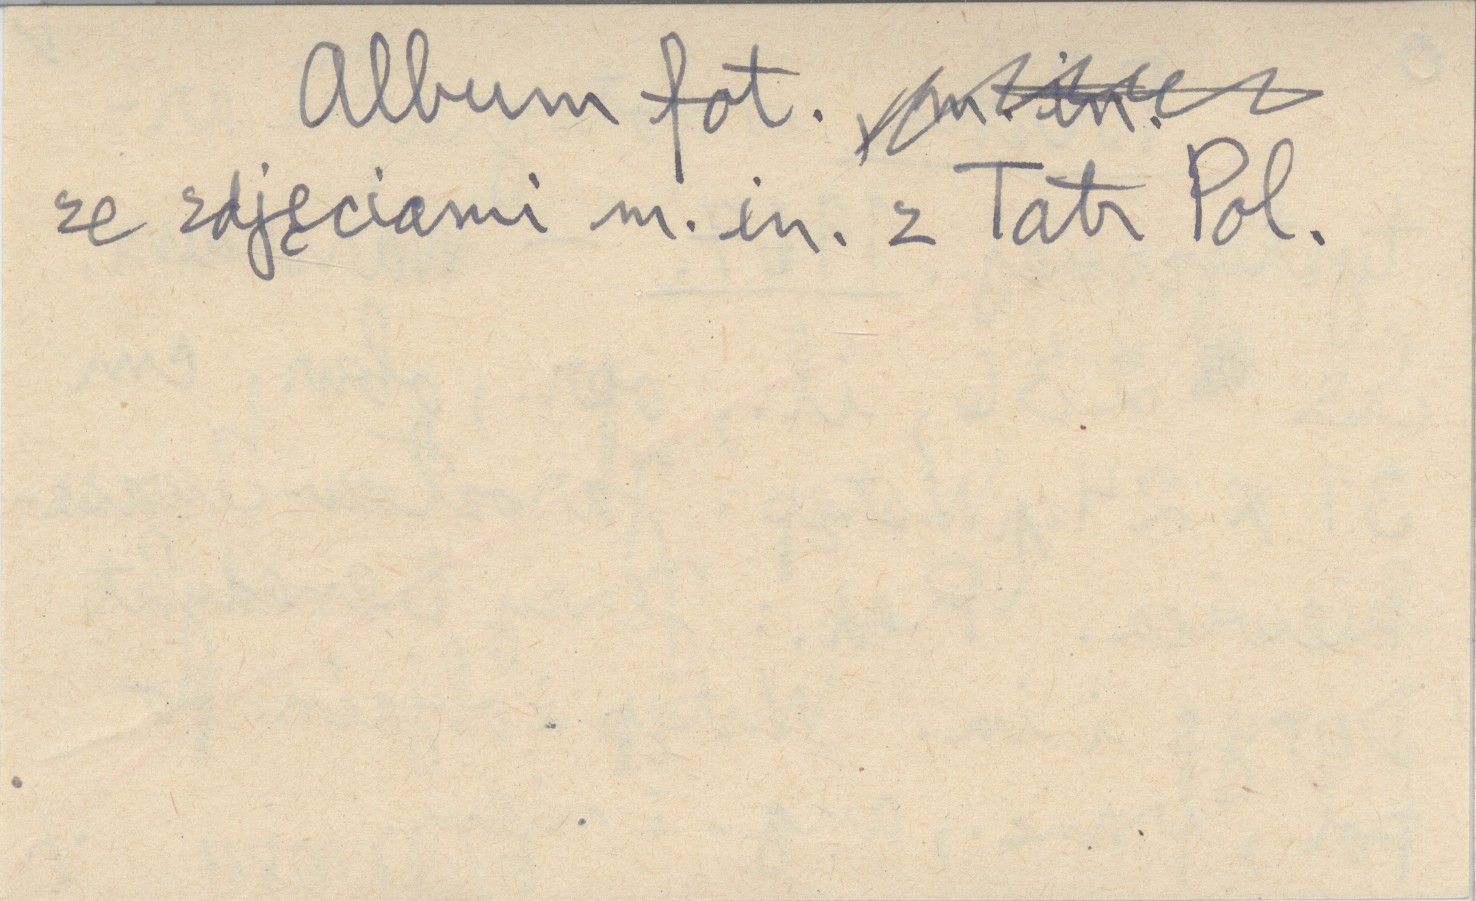 Album fot. m. in.
ze zdjęciami m. in. z Tatr Pol.